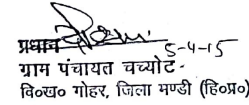 प्रधान 5-4-15
ग्राम पंचायत चच्योट
वि०ख० गोहर, जिला मण्डी (हि०प्र०)